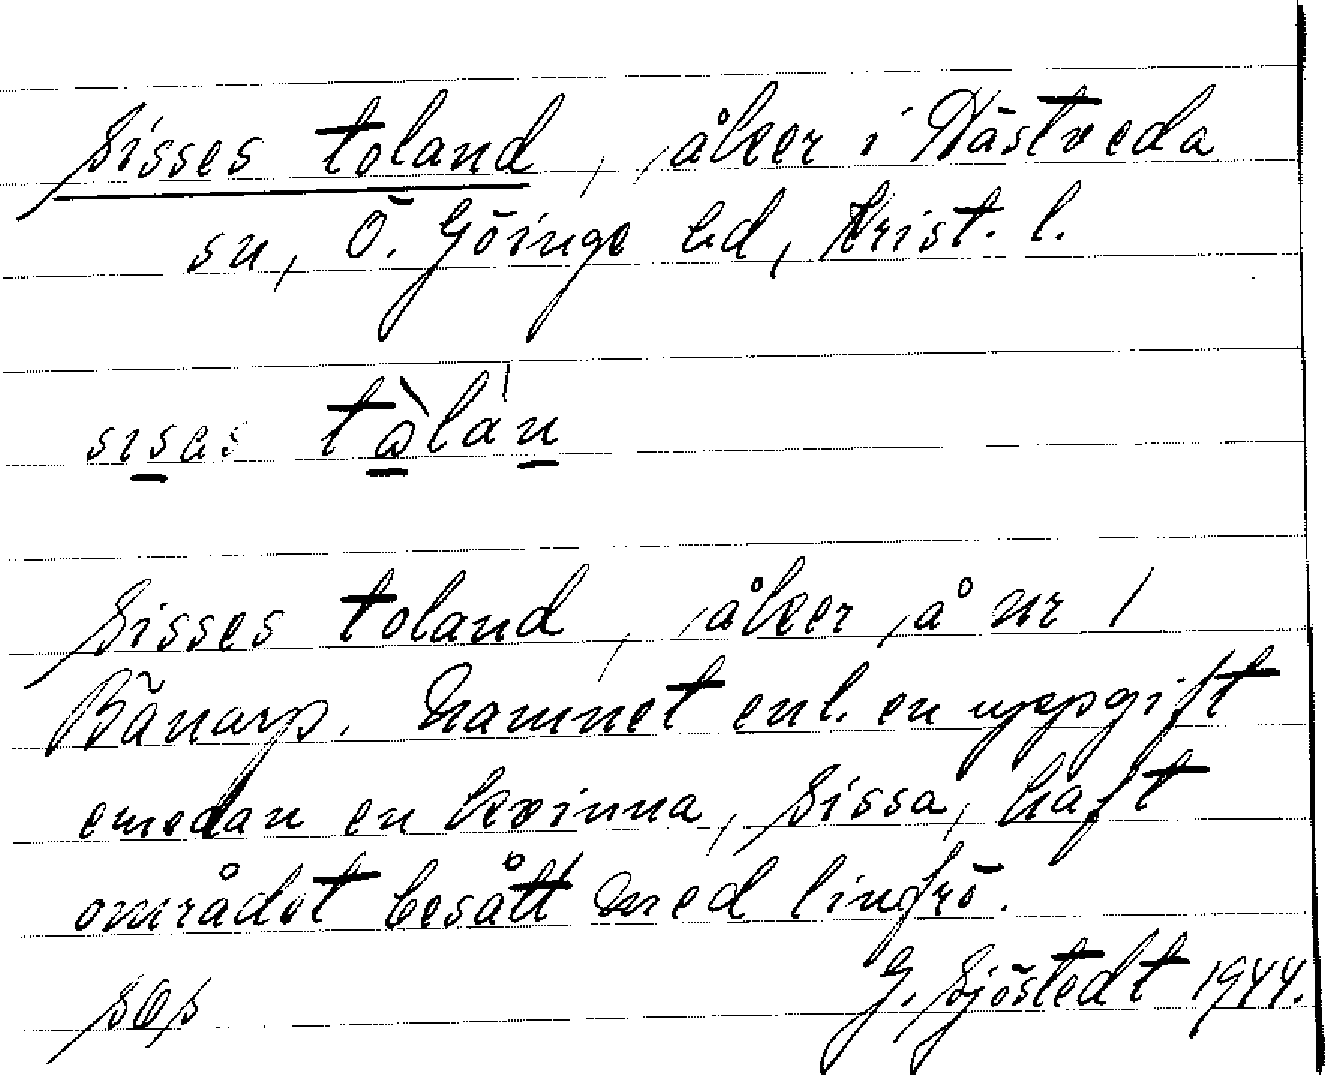 Sisses toland, åker i Hästveda
sn, Ö. Göinge hd, Krist. l.
Sisses toland, åker å nr 1
Bänarp. Namnet enl. en uppgift
emedan en kvinna, Sissa, haft
området besått med linfrö.
G. Sjöstedt 1944.